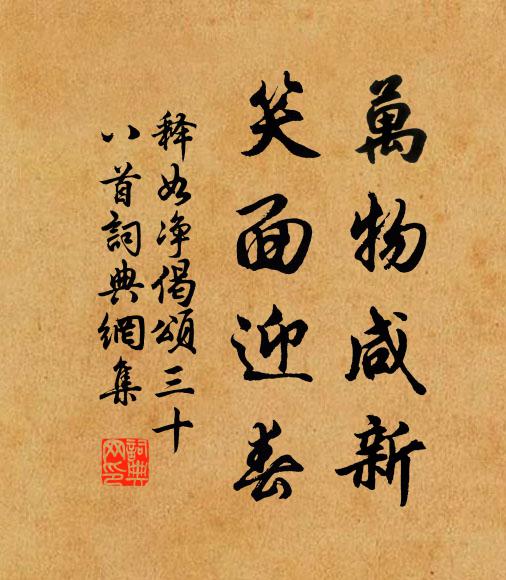 萬物咸新
笑面迎春
释如净偈頌三十
八首詞典網集
詞典網印